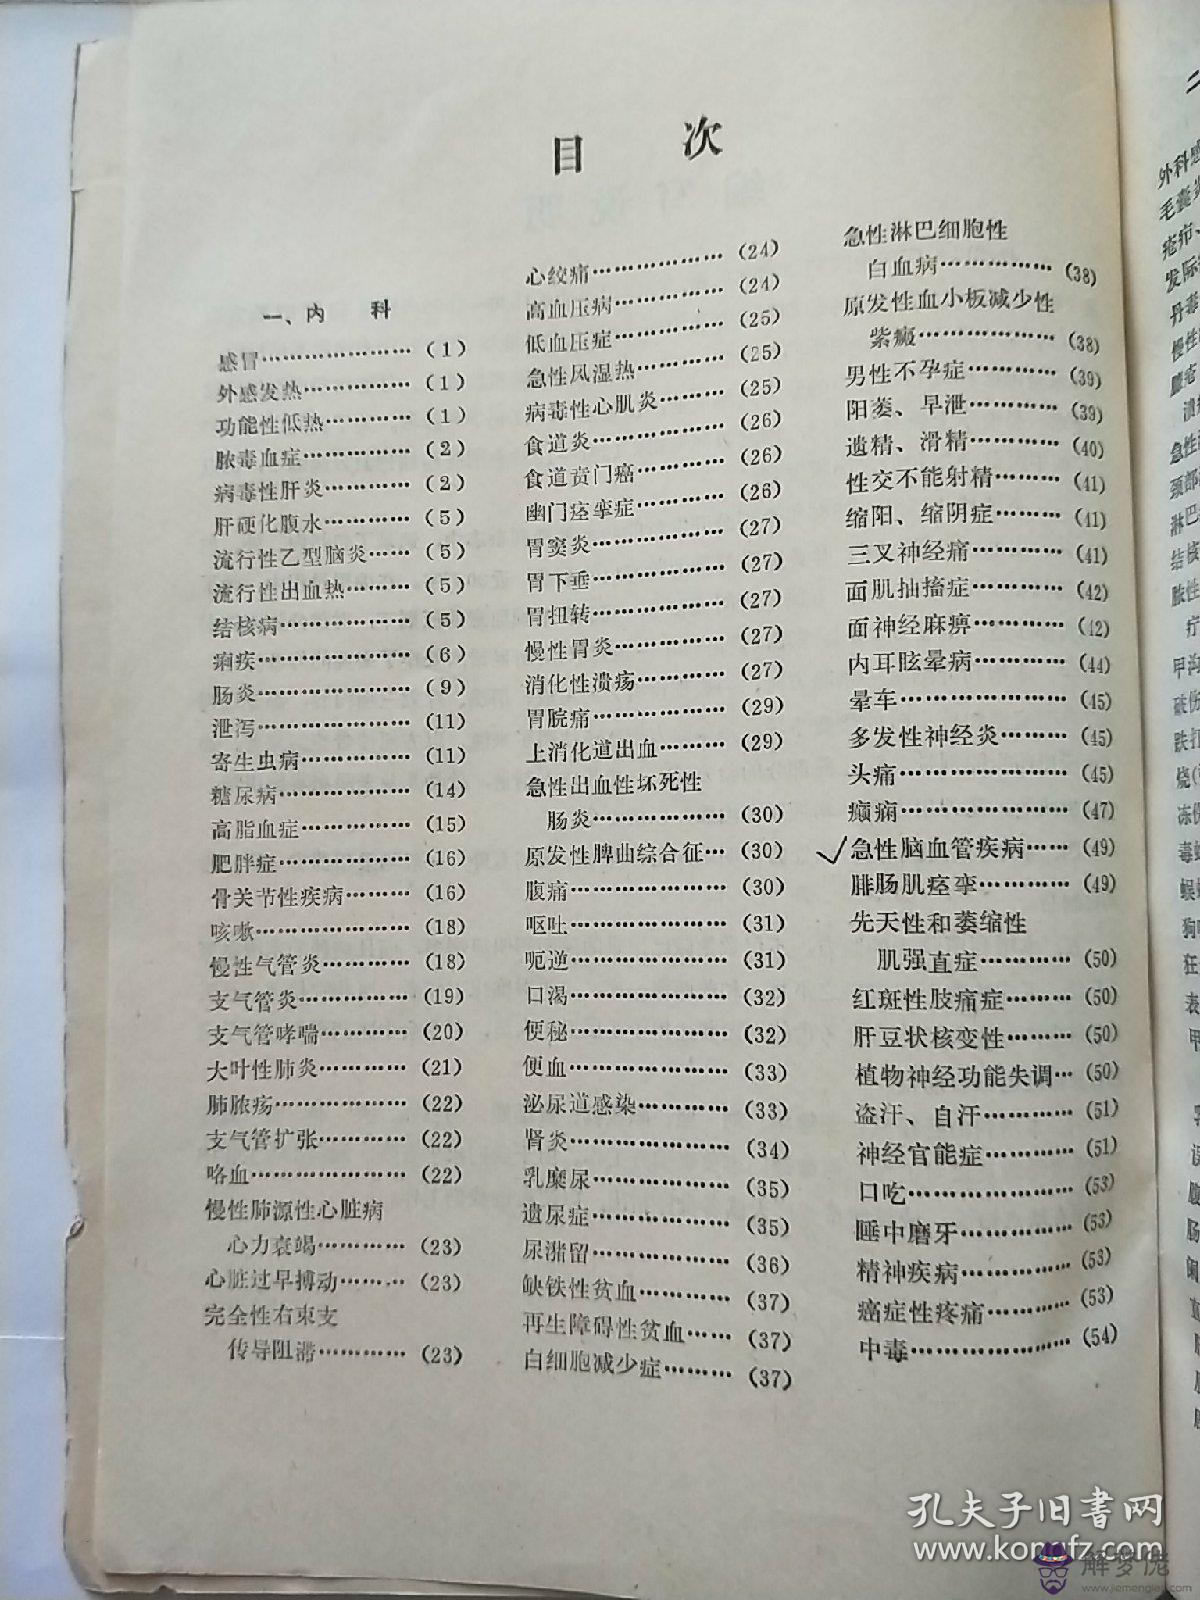 目 次
一、内 科
感冒…………………（1）
外感发热……………（1）
功能性低热…………（1）
脓毒血症……………（2）
病毒性肝炎…………（2）
肝硬化腹水…………（5）
流行性乙型脑炎……（5）
流行性出血热………（5）
结核病………………（5）
痢疾…………………（6）
肠炎…………………（9）
泄泻…………………（11）
寄生虫病……………（11）
糖尿病………………（14）
高脂血症……………（15）
肥胖症………………（16）
骨关节性疾病………（16）
咳嗽…………………（18）
慢性气管炎…………（18）
支气管炎……………（19）
支气管哮喘…………（20）
大叶性肺炎…………（21）
肺脓疡………………（22）
支气管扩张…………（22）
咯血…………………（22）
慢性肺源性心脏病
心力衰竭…………（23）
心脏过早搏动………（23）
完全性右束支
传导阻滞…………（23）
心绞痛………………（24）
高血压病……………（24）
低血压症……………（25）
急性风湿热…………（25）
病毒性心肌炎………（25）
食道炎………………（26）
食道贲门癌…………（26）
幽门痉挛症…………（26）
胃窦炎………………（27）
胃下垂………………（27）
胃扭转………………（27）
慢性胃炎……………（27）
消化性溃疡…………（27）
胃脘痛………………（29）
上消化道出血………（29）
急性出血性坏死性
肠炎………………（30）
原发性脾曲综合征…（30）
腹痛…………………（30）
呕吐…………………（31）
呃逆…………………（31）
口渴…………………（32）
便秘…………………（32）
便血…………………（33）
泌尿道感染…………（33）
肾炎…………………（34）
乳糜尿………………（35）
遗尿症………………（35）
尿潴留………………（36）
缺铁性贫血…………（37）
再生障碍性贫血……（37）
白细胞减少症………（37）
急性淋巴细胞性
白血病……………（38）
原发性血小板减少性
紫癜………………（38）
男性不孕症…………（39）
阳萎、早泄…………（39）
遗精、滑精…………（40）
性交不能射精………（41）
缩阳、缩阴症………（41）
三叉神经痛…………（41）
面肌抽搐症…………（42）
面神经麻痹…………（42）
内耳眩晕病…………（44）
晕车…………………（45）
多发性神经炎………（45）
头痛…………………（45）
癫痫…………………（47）
急性脑血管疾病……（49）
腓肠肌痉挛…………（49）
先天性和萎缩性
肌强直症…………（50）
红斑性肢痛症………（50）
肝豆状核变性………（50）
植物神经功能失调…（50）
盗汗、自汗…………（51）
神经官能症…………（51）
口吃…………………（53）
睡中磨牙……………（53）
精神疾病……………（53）
癌症性疼痛…………（53）
中毒…………………（54）
孔夫子旧書网
www.kongfz.com
解梦佬
www.jiemenglei.com